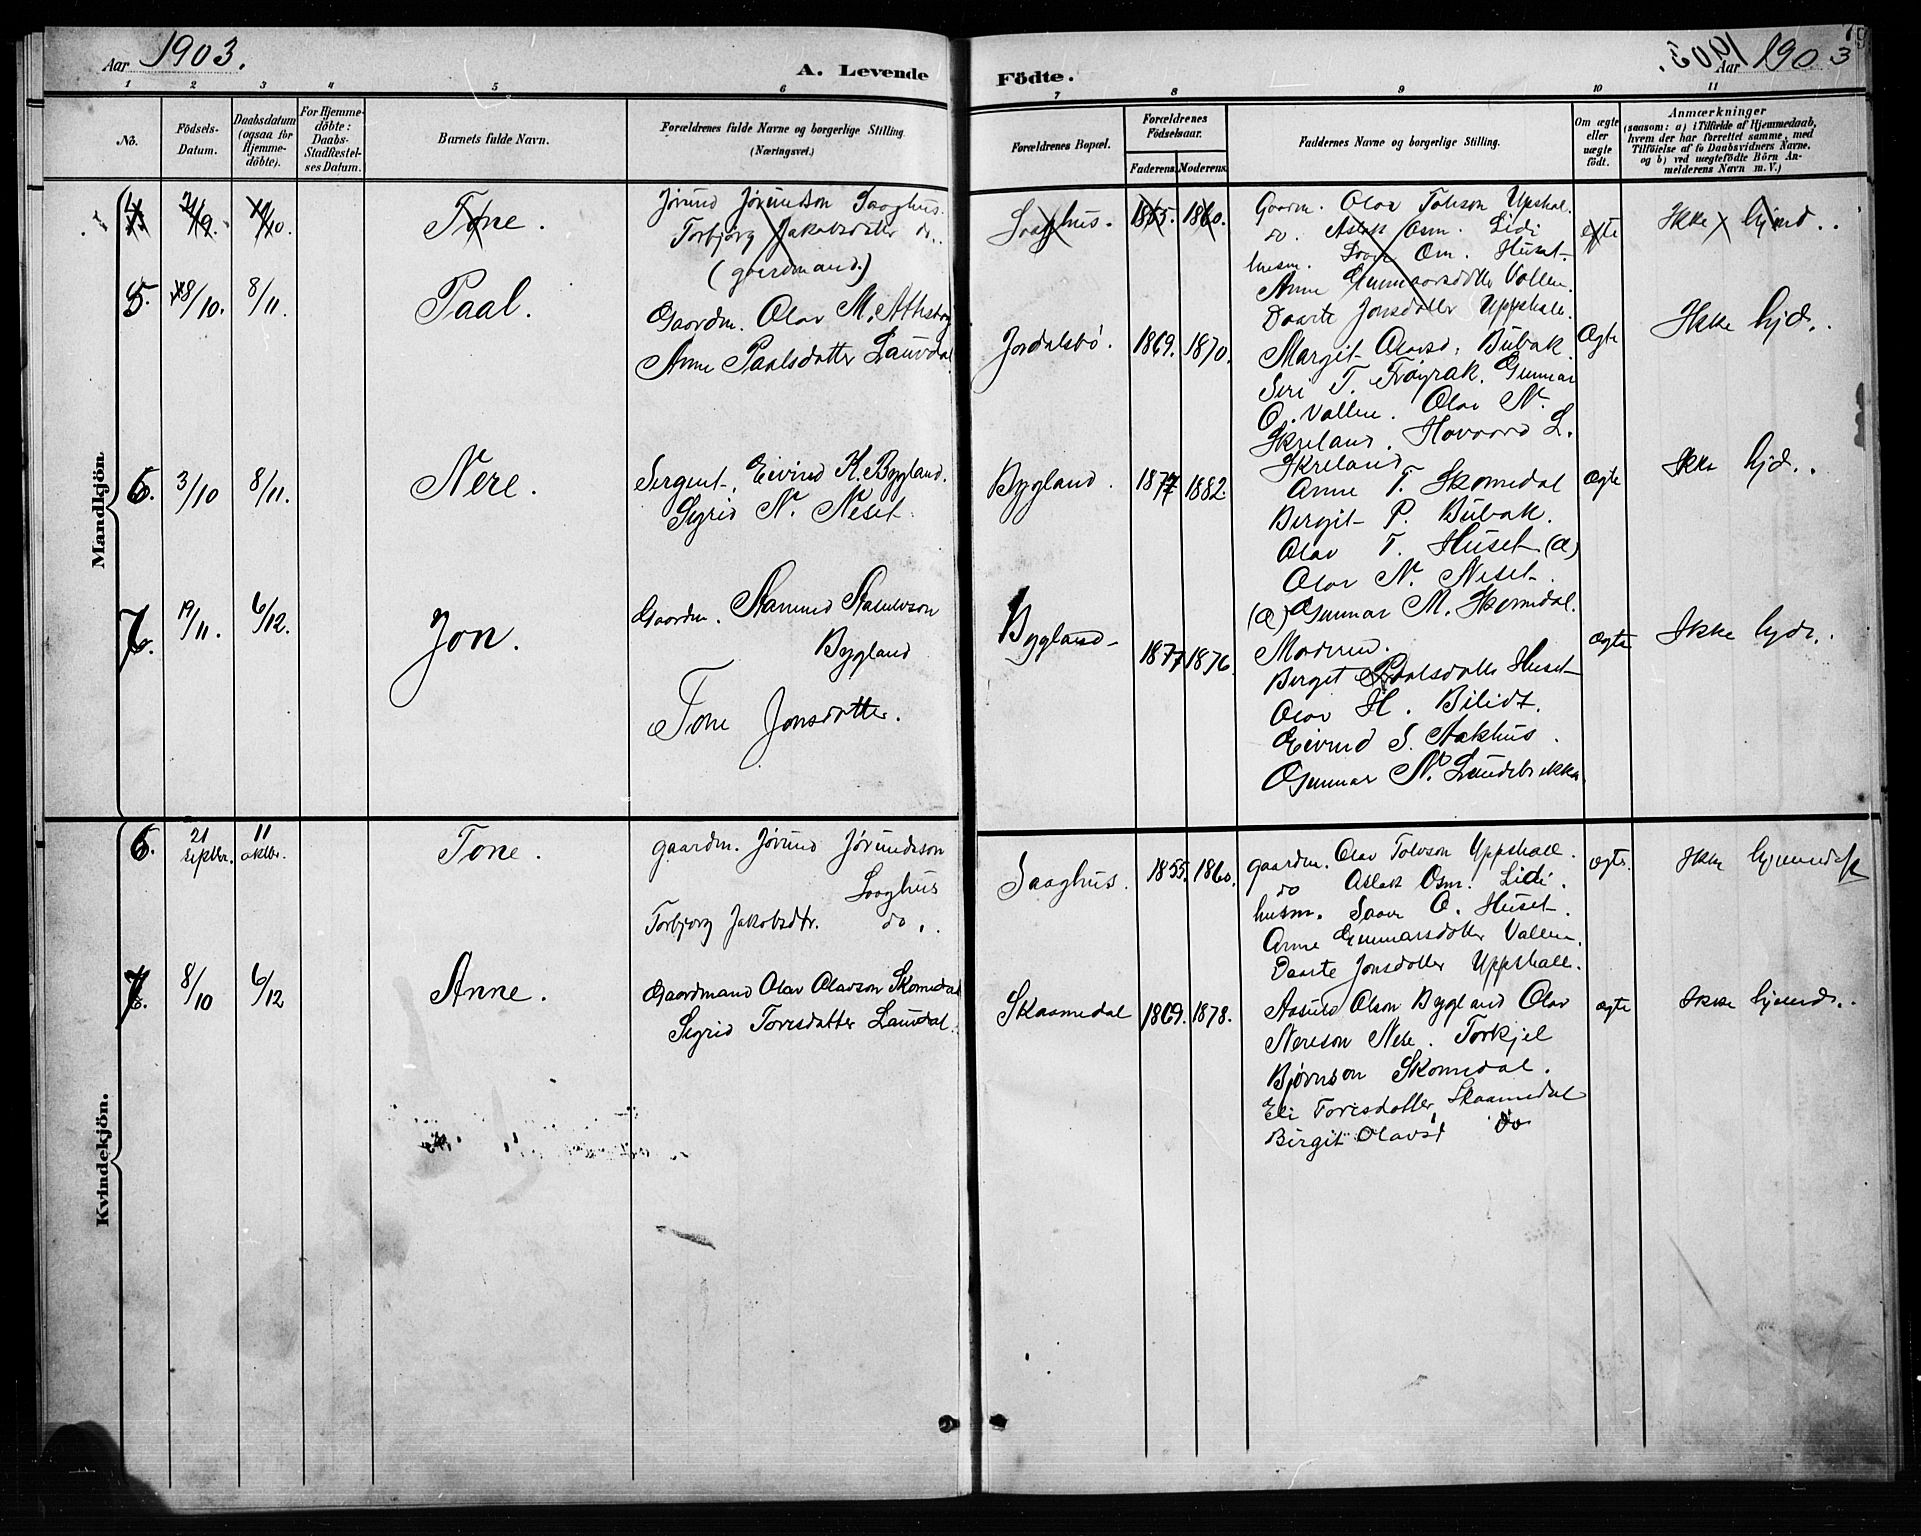 Aar 1903.
A. Levende Födte.
1903. Aar 1903
1 2 3 4 5 6 7 8 9 10 11
No.
Födsels-Datum.
Daabsdatum (ogsaa for Hjemme-döbte).
For Hjemme-döbte: Daabs-Stadfæstel-ses Datum.
Barnets fulde Navn.
Forældrenes fulde Navne og borgerlige Stilling.
(Næringsvei.)
Forældrenes Bopæl.
Forældrenes Födselsaar.
Faderens. Moderens.
Faddernes Navne og borgerlige Stilling.
Om ægte eller uægte födt.
Anmærkninger
(saasom: a) i Tilfælde af Hjemmedaab,
hvem der har forrettet samme, med
Tilföielse af to Daabsvidners Navne.
og b) ved uægtefödte Börn An-
melderens Navn m. V.)
Mandkjön
21/9. 11/10.
Tone.
Jørund Jørundson Saaghus.
Torbjørg Jakobsdatter do.
(gaardmand.)
Saaghus.
1865. 1860.
Gaardm. Olav Tolvson Upshal.
do. Aslak Osm. Lidi
husm. Saave Om. Huset
Anne Gunnarsdotter Vallen.
Daarte Jonsdotter Uppshall.
ægte
Ikke hjemd.
5. 18/10. 8/11.
Paal.
Gaardm. Olav M.
Anne Paalsdatter Lauvdal
Jordalsbø.
1869. 1870.
Margit Olavsd. Bubak
Siri T. Frøyrak. Gunnar
O. Vallen. Olav N.
Skreland. Hovaard L.
Skreland
Ægte
Ikke hjd.
6. 3/10 8/11.
Nere.
Sergent. Eivind K. Bygland.
Sigrid N. Neset.
Bygland.
1877 1882.
Anne T. Skomedal
Bergit P. Bubak.
Olav T. Huset (a)
Olav N. Neset.
(a) Gunnar M. Skomedal.
ægte
Ikke hjd.
7. 19/11. 6/12.
Jon.
Gaardm. Aamund
Bygland
Tone Jonsdotter.
Bygland
1877 1876.
Moderen.
Berget Paalsdotter Huset
Olav H. Bilidt.
Eivind S. Aakhus.
Gunnar N. Lundebrekka
ægte
Ikke hjd.
Kvindekjön.
6. 21 septbr. 11 oktbr.
Tone.
gaardm. Jørund Jørundson
Saaghus
Torbjørg Jakobsdtr. do.
Saaghus.
1855. 1860.
gaardm. Olav Tolvson Uppshall.
do Aslak Osm. Lidi.
husm. Saave O. Huset.
Anne Gunnarsdotter Vallen.
Daarte Jonsdotter Uppshall.
ægte
Ikke
7. 8/10 6/12
Anne.
Gaardmand Olav Olavson Skomedal
Sigrid Torisdatter Lauvdal.
Skaamedal
1869. 1878.
Aasuld Olson Bygland Olav
Nereson Nese. Torkjel
Bjørnson Skomedal.
Eli Torisdotter Skaamedal
Birgit Olavsd do
ægte
Ikke hjemd.